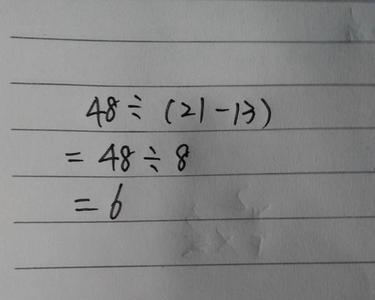 48÷(21-13)
=48÷8
=6